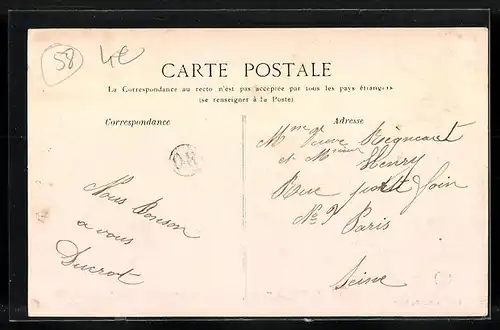 58
4€
CARTE POSTALE
La Correspondance au recto n'est pas acceptée par tous les pays étrangers
(se renseigner à la Poste)
Correspondance
Adresse
Mme Veuve
et Henry
Rue Foin
No 9
Paris
Seine
Nous Pensons
a vous
Ducrot